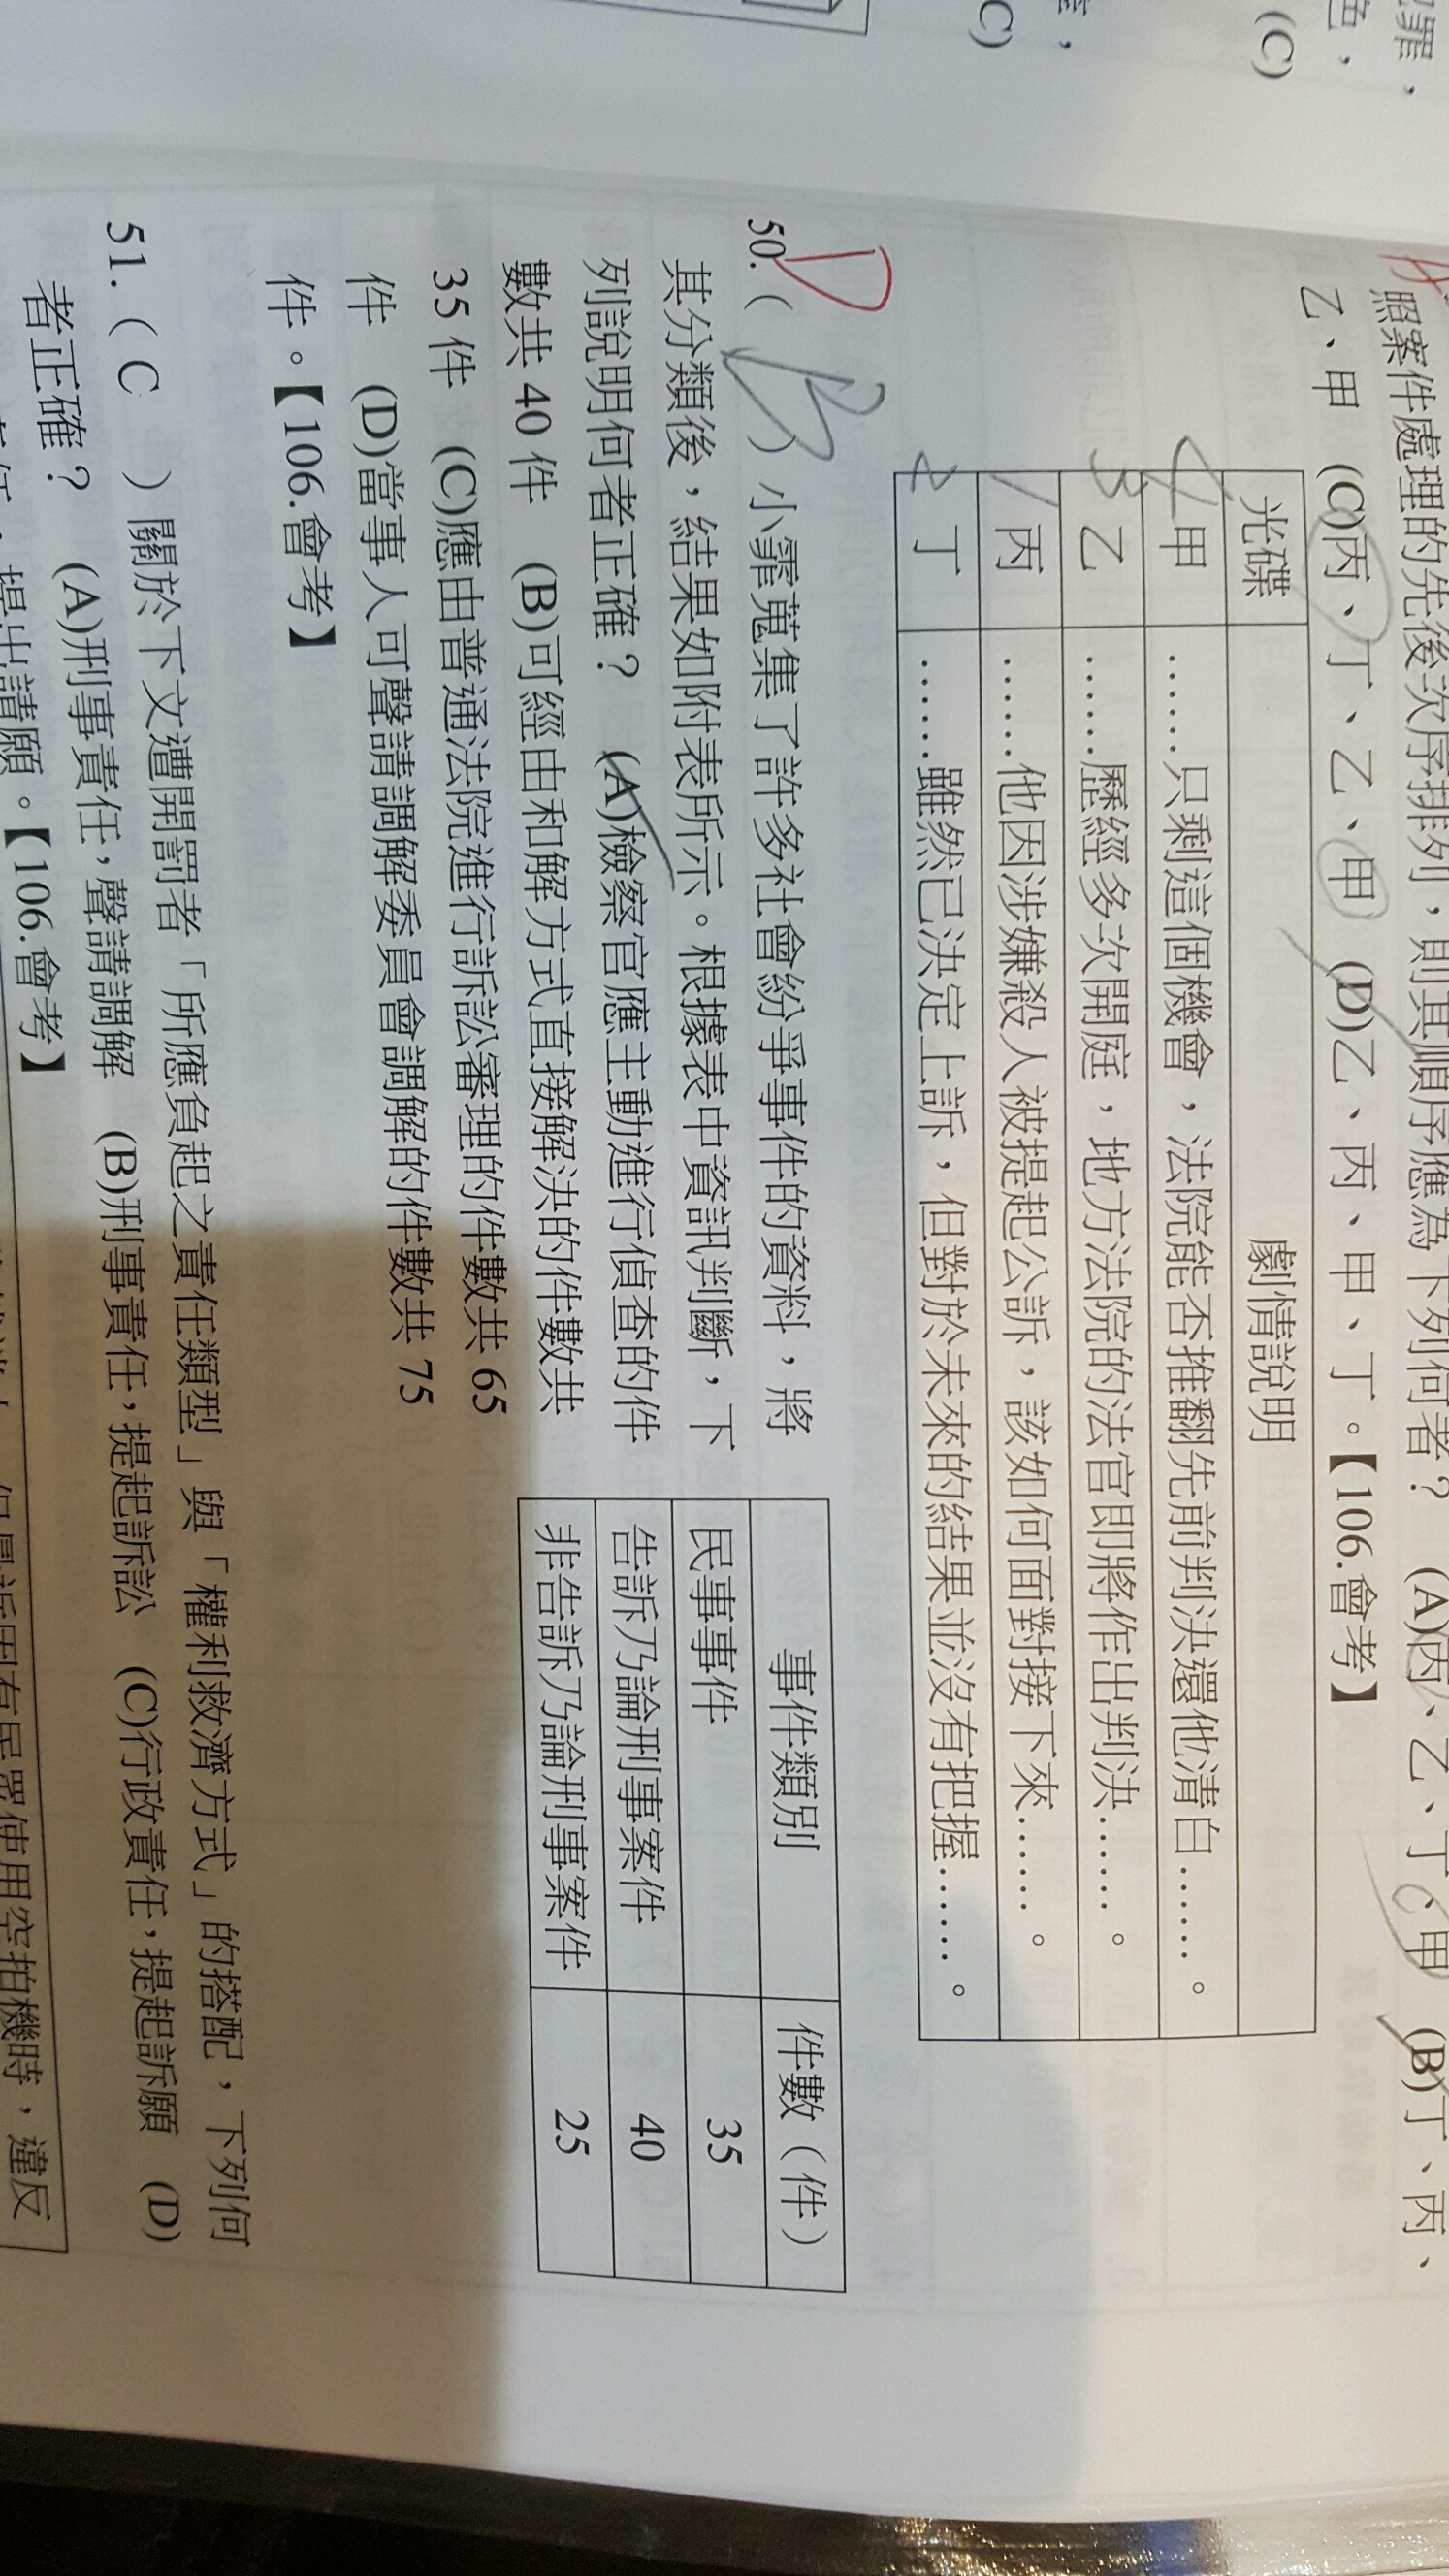 犯罪，
色，
(C)
，
C)
照案件處理的先後次序排列，則其順序應為下列何者？ (A)丙、乙、丁、甲 (B)丁、丙、
乙、甲 (C)丙、丁、乙、甲 (D)乙、丙、甲、丁。【106.會考】
光碟 劇情說明
4 甲 ……只剩這個機會，法院能否推翻先前判決還他清白……。
3 乙 ……歷經多次開庭，地方法院的法官即將作出判決……。
1 丙 ……他因涉嫌殺人被提起公訴，該如何面對接下來……。
2 丁 ……雖然已決定上訴，但對於未來的結果並沒有把握……。
D
50.( B )小霏蒐集了許多社會紛爭事件的資料，將
其分類後，結果如附表所示。根據表中資訊判斷，下
列說明何者正確？ (A)檢察官應主動進行偵查的件
數共 40 件 (B)可經由和解方式直接解決的件數共
35 件 (C)應由普通法院進行訴訟審理的件數共 65
件 (D)當事人可聲請調解委員會調解的件數共 75
件。【106.會考】
事件類別 件數（件）
民事事件 35
告訴乃論刑事案件 40
非告訴乃論刑事案件 25
51.( C )關於下文遭開罰者「所應負起之責任類型」與「權利救濟方式」的搭配，下列何
者正確？ (A)刑事責任，聲請調解 (B)刑事責任，提起訴訟 (C)行政責任，提起訴願 (D)
提出請願。【106.會考】
使用空拍機時，違反